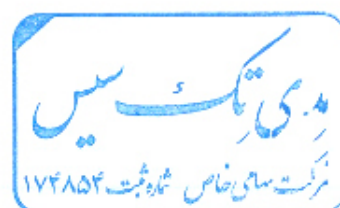 مدی تک سیس
شرکت سهامی خاص شماره ثبت ۱۷۴۸۵۴